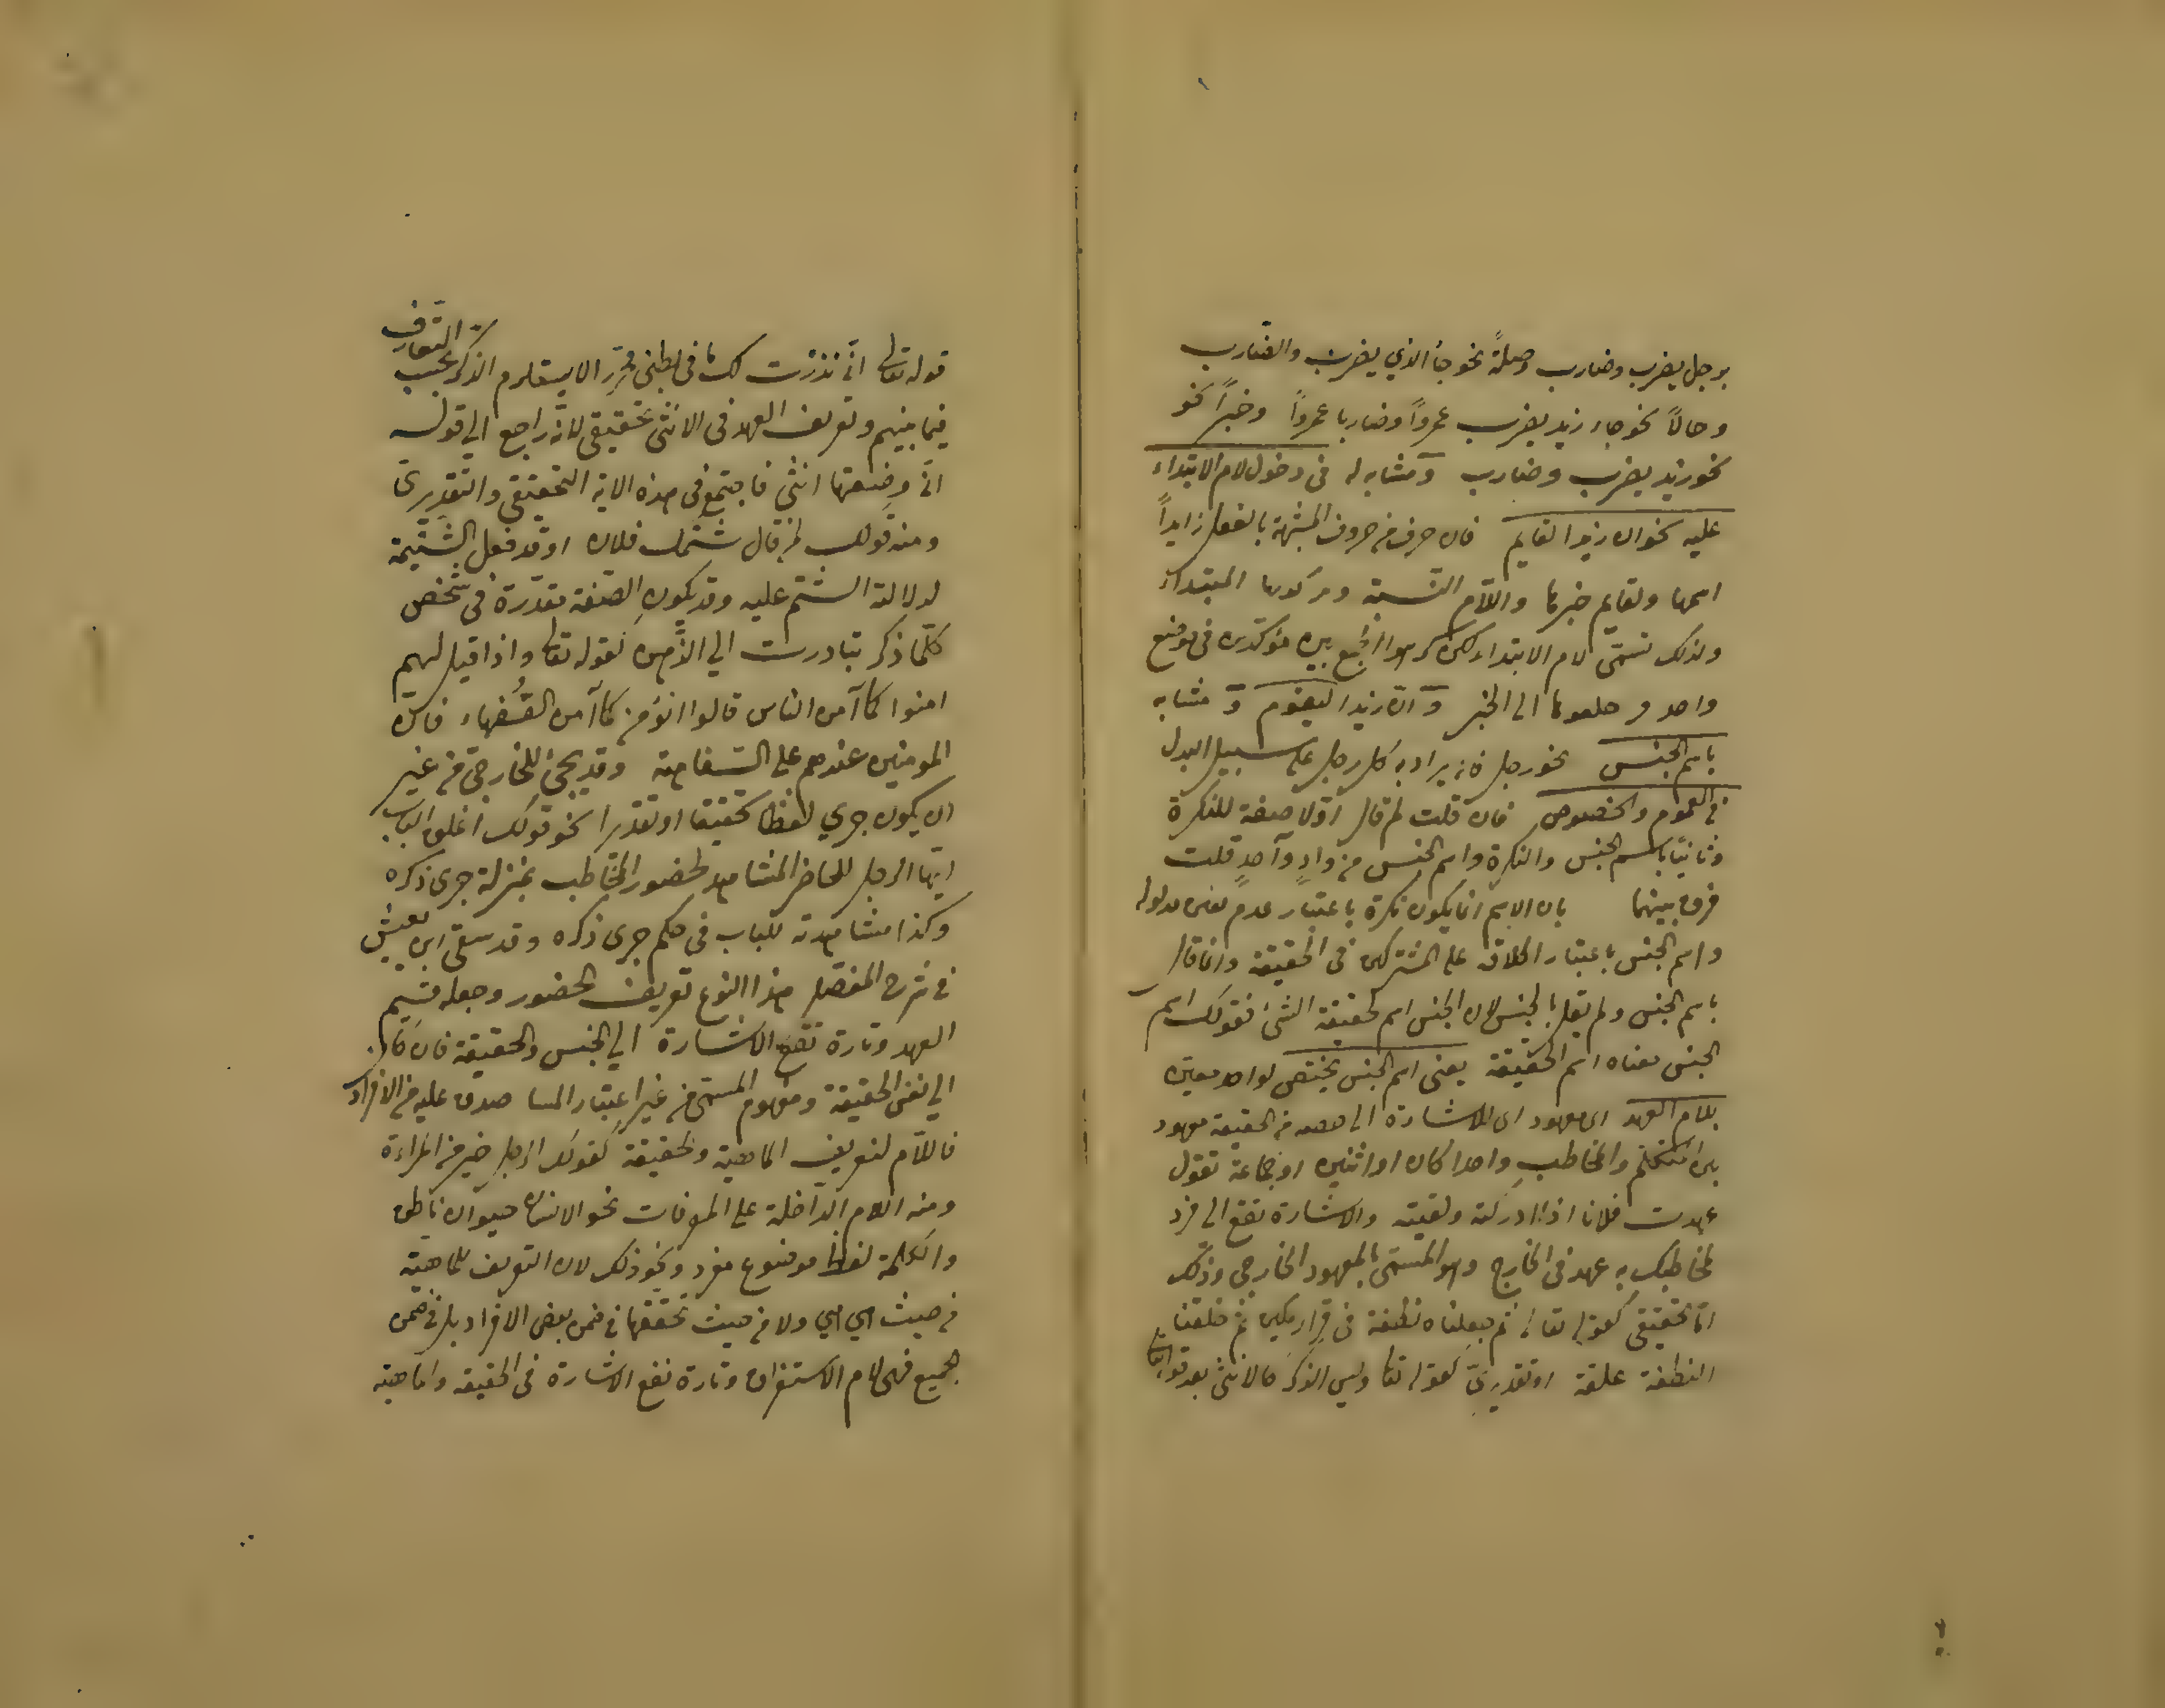 برجل يضرب وضارب وصلةً نحو جاء الذي يضرب والضارب
وحالاً نحو جاء زيد يضرب عمرواً وضاربا عمرواً وخبراً نحو
نحو زيد يضرب وضارب و مشابه له في دخول لام الابتداء
عليه نحو ان زيدا لقايم فان حرف من حروف المشبهة بالفعل زايداً
اسمها ولقايم خبرها واللام للنسبة ومدخولها المبتداء
ولذلك تسمى لام الابتداء لكن كره الجمع بين مؤكدين في موضع
واحد الى الخبر و ان زيدا ليقوم و مشابه
باسم الجنس نحو رجل فانه يراد به كل رجل على سبيل البدل
في العموم والخصوص فان قلت لم قال اولا صفة للنكرة
وثانيا باسم الجنس والنكرة واسم الجنس من وادٍ واحدٍ قلت
فرق بينهما بان الاسم انما يكون نكرة باعتبار عدم تعين مدلوله
واسم الجنس باعتبار اطلاقه على المشتركين في الحقيقة وانما قال
باسم الجنس ولم يقل بالجنس لان الجنس اسم لحقيقة الشئ فقولك اسم
الجنس معناه اسم الحقيقة يعنى اسم الجنس يختص لواحد معين
بلام العهد اى معهود اى للاشارة الى حصة من الحقيقة معهود
بين المتكلم والمخاطب واحدا كان او اثنين او جماعة تقول
عهدت فلانا اذا ادركته ولقيته والاشارة تقع الى فرد
لمخاطبك به عهد في الخارج وهو المسمى بالمعهود الخارجي وذلك
اما تحقيقي كقوله تعالى ثم جعلناه نطفة في قرار مكين ثم خلقنا
النطفة علقة او تقديري كقوله تعا وليس الذكر كالانثى بعد قوله تعالى
قوله تعالى انى نذرت لك ما في بطني محررا لا يستلزم الذكر بحسب التعارف
فيما بينهم وتعريف العهد في الانثى تحقيقي لانه راجع الي قوله
انى وضعتها انثى فاجتمع في هذه الاية التحقيقي والتقديرى
ومنه قولك لمن قال شتمك فلان اوقد فعل الشتيمة
لدلالة الشتم عليه وقد يكون الصفة مقدرة في شخص
كلما ذكر تبادرت الي الذهن كقوله تعالى واذا قيل لهم
امنوا كما آمن الناس قالوا انؤمن كما آمن السفهاء فان
المومنين عندهم على السفاهة وقد يجئ للخارجي من غير
ان يكون جري لفظا تحقيقا او تقديرا نحو قولك اغلق الباب
ايها الرجل للحاضر المشاهد لحضور المخاطب بمنزلة جرى ذكره
وكذا مشاهدته للباب في حكم جرى ذكره وقد سمى ابن يعيش
في شرح المفصل هذا النوع تعريف الحضور وجعله قسيم
العهد وتارة تقع الاشارة الي الجنس والحقيقة فان كان
الي نفس الحقيقة ومفهوم المسمى من غير اعتبار لما صدق عليه من الافراد
فاللام لتعريف الماهية والحقيقة كقولك الرجل خير من المراءة
ومنه اللام الداخلة على المعرفات نحو الانسان حيوان ناطق
والكلمة لفظ موضوع مفرد ونحو ذلك لان التعريف للماهية
من حيث هي هي ولا من حيث تحققها في ضمن بعض الافراد بل في ضمن
الجميع فهي لام الاستغراق وتارة تقع الاشارة في الحقيقة والماهية